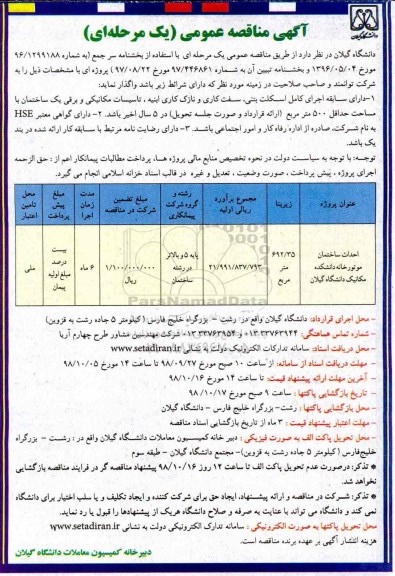 دانشگاه گیلان
آگهی مناقصه عمومی (یک مرحله‌ای)
دانشگاه گیلان در نظر دارد از طریق مناقصه عمومی یک مرحله ای با استفاده از بخشنامه سر جمع (به شماره ۹۶/۱۲۹۹۱۸۸
مورخ ۱۳۹۶/۰۵/۰۴ و بخشنامه تبیین آن به شماره ۹۷/۴۴۶۸۶۱ مورخ ۹۷/۰۸/۲۲) پروژه ای با مشخصات ذیل را به
شرکت توانمند و صاحب صلاحیت در زمینه مورد نظر که دارای شرائط زیر باشد واگذار نماید:
۱-دارای سابقه اجرای کامل اسکلت بتنی، سفت کاری و نازک کاری ابنیه ، تاسیسات مکانیکی و برقی یک ساختمان با
مساحت حداقل ۵۰۰ متر مربع (ارائه قرارداد و صورت جلسه تحویل) در ۵ سال اخیر باشد. ۲- دارای گواهی معتبر HSE
به نام شرکت، صادره از اداره رفاه کار و امور اجتماعی باشد. ۳- دارای رضایت نامه مرتبط با سابقه کار ارائه شده در بند
یک باشد.
توجه: با توجه به سیاست دولت در نحوه تخصیص منابع مالی پروژه هـا، پرداخت مطالبات پیمانکار اعم از : حق الزحمه
اجرای پروژه ، پیش پرداخت ، صورت وضعیت ، تعدیل و غیره در قالب اسناد خزانه اسلامی انجام می گیرد.
عنوان پروژه | زیربنا | مجموع برآورد ریالی اولیه | رشته و گروه شرکت پیمانکاری | مبلغ تضمین شرکت در مناقصه | مدت زمان اجرا | مبلغ پیش پرداخت | محل تامین اعتبار
احداث ساختمان موتورخانه دانشکده مکانیک دانشگاه گیلان | ۶۹۲/۳۵ متر مربع | ۲۱/۹۹۱/۸۳۷/۷۹۳ | پایه ۵ و بالاتر در رشته ساختمان | ۱/۱۰۰/۰۰۰/۰۰۰ ریال | ۶ ماه | بیست درصد مبلغ اولیه پیمان | ملی
ParsNamadData
- محل اجرای قرارداد: دانشگاه گیلان واقع در: رشت - بزرگراه خلیج فارس (کیلومتر ۵ جاده رشت به قزوین)
- شماره تماس هماهنگی: ۳۳۷۶۳۹۴۴-۰۱۳ و ۳۳۷۶۳۹۵۴-۰۱۳ شرکت مهندسین مشاور طرح چهارم آریا
- محل دریافت اسناد: سامانه تدارکات الکترونیک دولت به نشانی www.setadiran.ir
- مهلت دریافت اسناد از سامانه: از ساعت ۱۰ صبح مورخ ۹۸/۰۹/۲۷ تا ساعت ۱۴ مورخ ۹۸/۱۰/۰۵
- آخرین مهلت ارائه پیشنهاد قیمت: تا ساعت ۱۴ مورخ ۹۸/۱۰/۱۶
- تاریخ بازگشایی پاکتها : ساعت ۹ صبح مورخ ۹۸/۱۰/۱۷
- محل بازگشایی پاکتها : رشت- بزرگراه خلیج فارس - دانشگاه گیلان
- مهلت اعتبار پیشنهاد قیمت : ۳ ماه از تاریخ بازگشایی اسناد مناقصه
- محل تحویل پاکت الف به صورت فیزیکی : دبیر خانه کمیسیون معاملات دانشگاه گیلان واقع در : رشت - بزرگراه
خلیج‌فارس (کیلومتر ۵ جاده رشت به قزوین)- مجتمع دانشگاه گیلان - طبقه سوم
* تذکر: درصورت عدم تحویل پاکت الف تا ساعت ۱۲ روز ۹۸/۱۰/۱۶ پیشنهاد مناقصه گر در فرایند مناقصه بازگشایی
نخواهد شد.
* تذکر: شرکت در مناقصه و ارائه پیشنهاد، ایجاد حق برای شرکت کننده و ایجاد تکلیف و یا سلب اختیار برای دانشگاه
نمی کند و دانشگاه می تواند با عنایت به صرفه و صلاح دانشگاه هریک از پیشنهادها را قبول یا رد نماید.
محل تحویل پاکتها به صورت الکترونیکی : سامانه تدارک الکترونیکی دولت به نشانی www.setadiran.ir
هزینه انتشار آگهی بر عهده برنده مناقصه است.
دبیرخانه کمیسیون معاملات دانشگاه گیلان